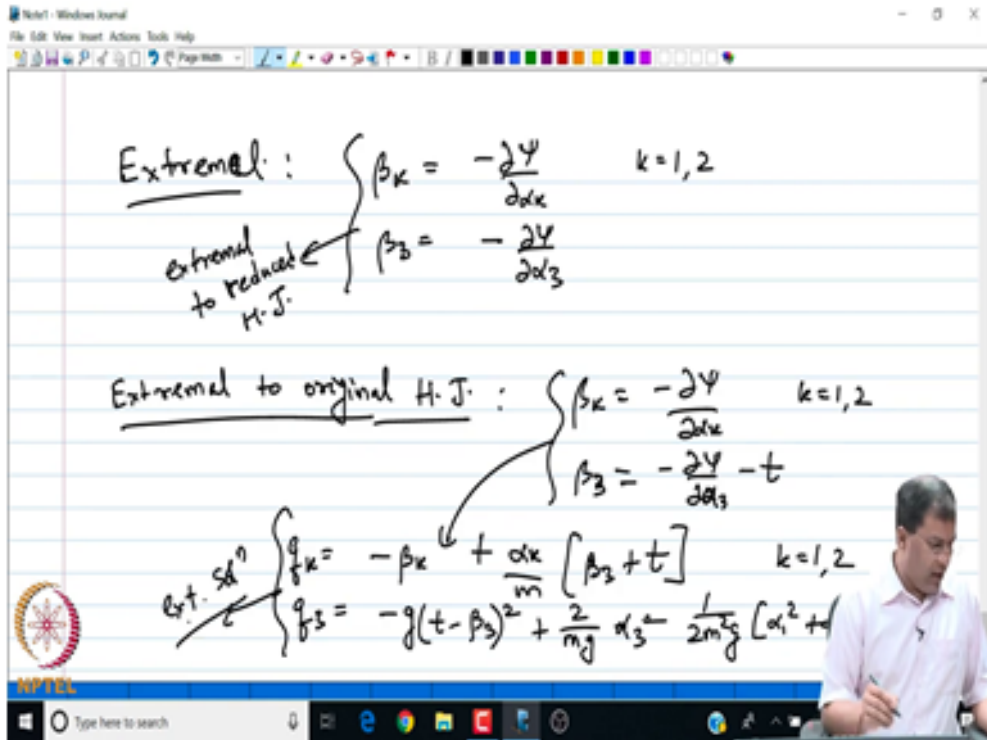 Note1 - Windows Journal
File Edit View Insert Actions Tools Help
Page Width
B I
Extremal : { βk = -∂Ψ/∂αk k = 1, 2
β3 = - ∂Ψ/∂α3
extremal
to reduced
H.J.
Extremal to original H.J. : { βk = -∂Ψ/∂αk k = 1, 2
β3 = - ∂Ψ/∂α3 - t
ext. solⁿ { qk = - βk + αk/m [β3 + t] k = 1, 2
q3 = -g(t - β3)² + 2/mg α3 - 1/2m²g [α1² +
NPTEL
Type here to search